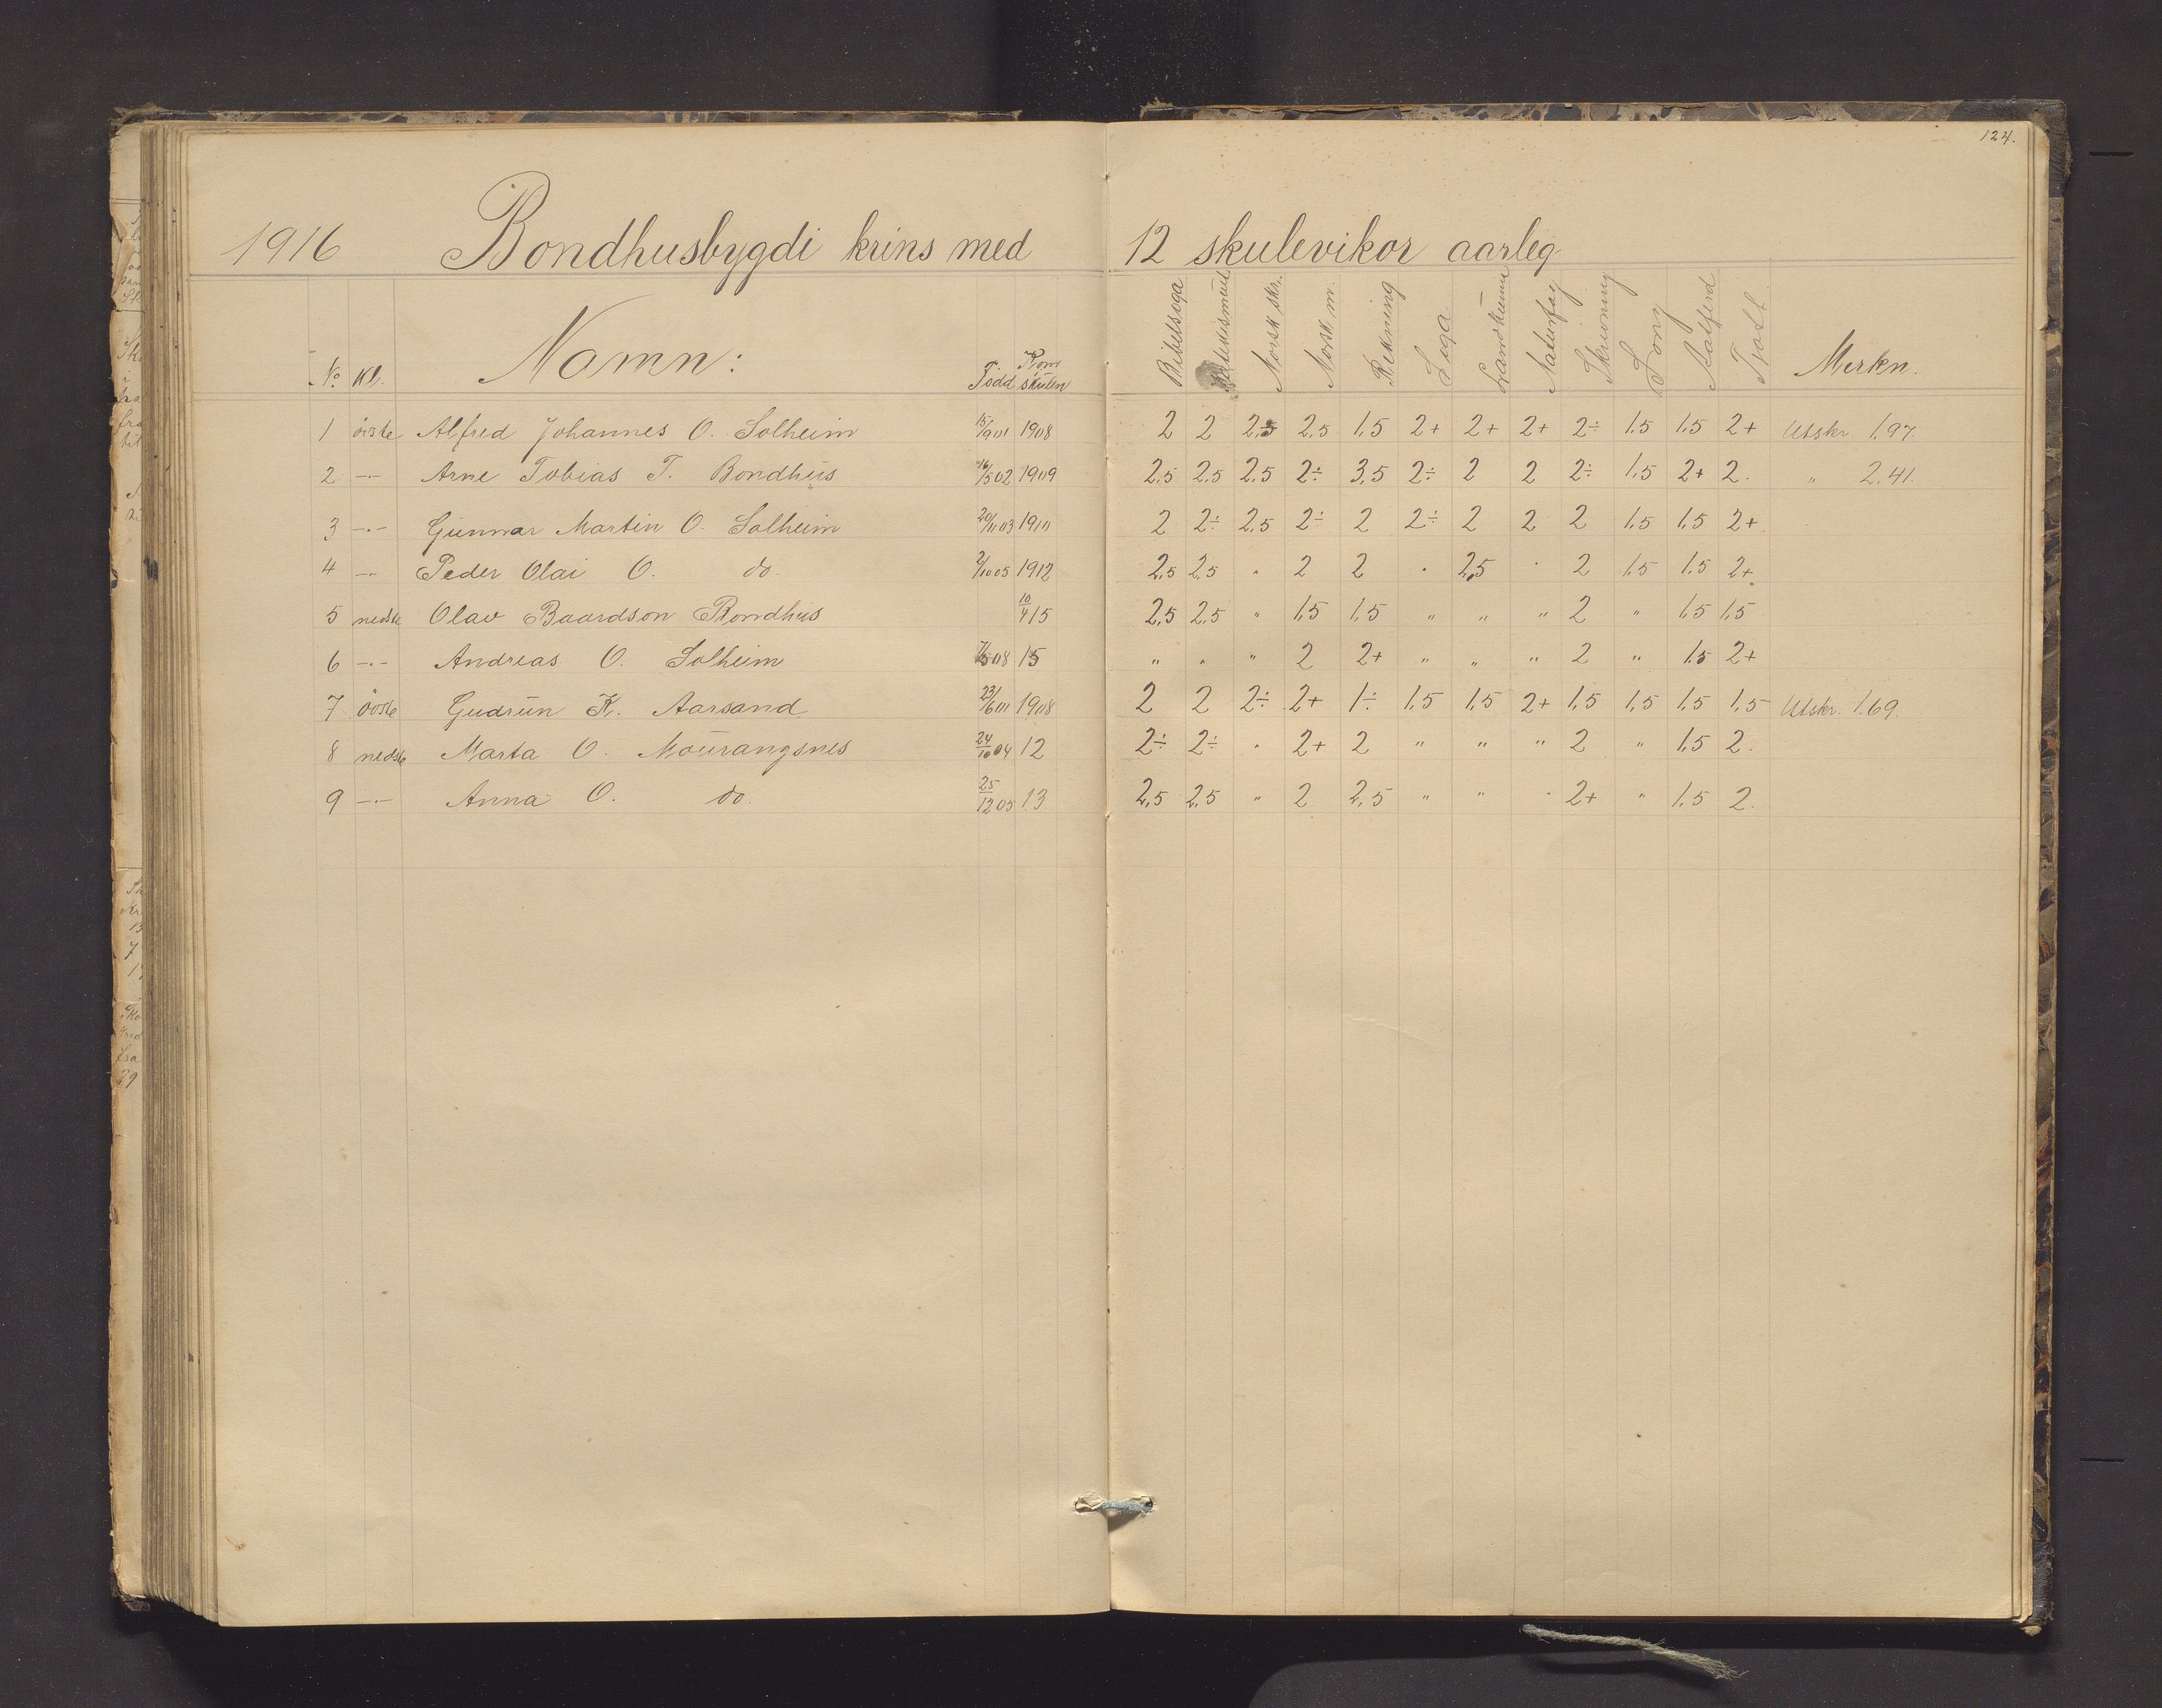 124.
1916 Bondhusbygdi krins med 12 skulevikor aarleg
No. Kl. Namn: Född Kom skulen Bibelsoga Norsk skr. Norsk m. Rekning Soga Landkunna Naturfag Skrivning Song Aatferd Merkn.
1 övste Alfred Johannes O. Solheim 15/9 01 1908 2 2 2,5 2,5 1,5 2+ 2+ 2+ 2÷ 1,5 1,5 2+ Utskr. 1.97.
2 -"- Arne Tobias T. Bondhus 16/5 02 1909 2,5 2,5 2,5 2÷ 3,5 2÷ 2 2 2÷ 1,5 2+ 2. " 2.41.
3 -"- Gunnar Martin O. Solheim 20/11 03 1911 2 2÷ 2,5 2÷ 2 2÷ 2 2 2 1,5 1,5 2+
4 -"- Peder Olai O. do. 2/10 05 1912 2,5 2,5 " 2 2 " 2,5 " 2 1,5 1,5 2+
5 nedste Olav Baardson Bondhus 10/4 15 2,5 2,5 " 1,5 1,5 " " " 2 " 1,5 1,5
6 -"- Andreas O. Solheim 08 15 " " " 2 2+ " " " 2 " 1,5 2+
7 övste Gudrun K. Aarsand 23/6 01 1908 2 2 2÷ 2+ 1÷ 1,5 1,5 2+ 1,5 1,5 1,5 1,5 Utskr. 1.69.
8 nedste Marta O. Mourangsnes 24/10 04 12 2÷ 2÷ " 2+ 2 " " " 2 " 1,5 2.
9 -"- Anna O. do. 25/12 05 13. 2,5 2,5 " 2 2,5 " " " 2+ " 1,5 2.